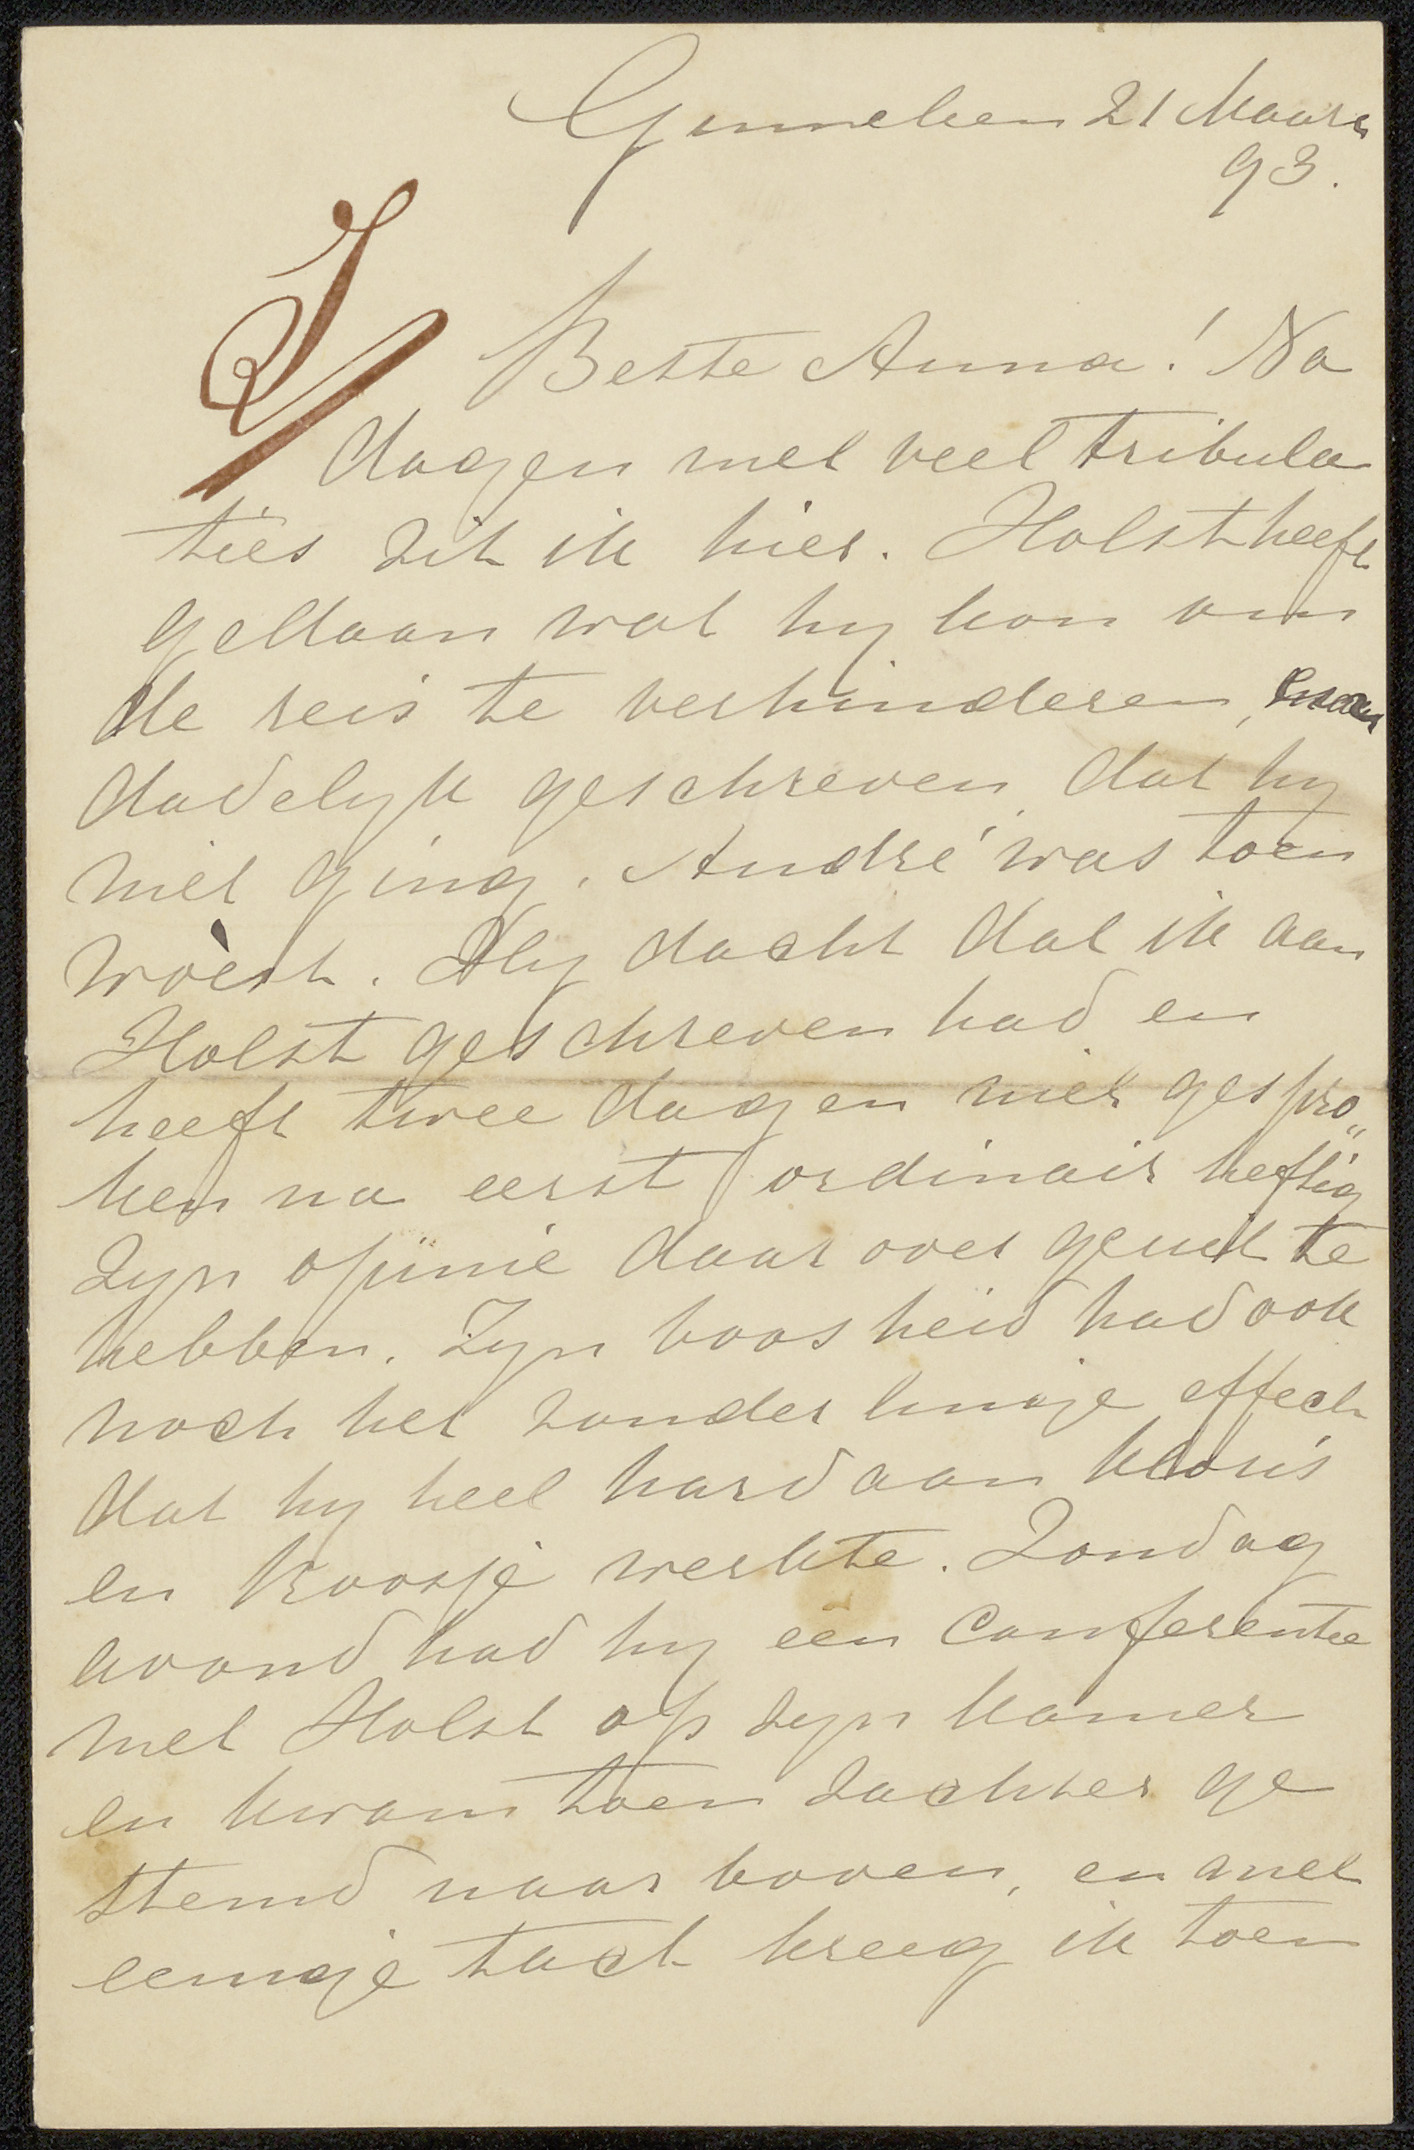 Ginneken 21 Maart
93.
Beste Anna! Na
dagen met veel tribula
ties zit ik hier. Holst heeft
gedaan wat hy kon om
de reis te verhinderen,
dadelyk geschreven dat hy
niet ging. André was toen
woest. Hy dacht dat ik aan
Holst geschreven had en
heeft twee dagen niet gespro„
ken na eerst ordinair heftig
zyn opinie daar over geuit te
hebben. Zyn boosheid had ook
noch het zonderlinge effect
dat hy heel hard aan kloris
en Roosje werkte. Zondag
avond had hy een conferentie
met Holst op zyn kamer
en kwam toen zachter ge
stemd naar boven, en met
eenige tact kreeg ik toen